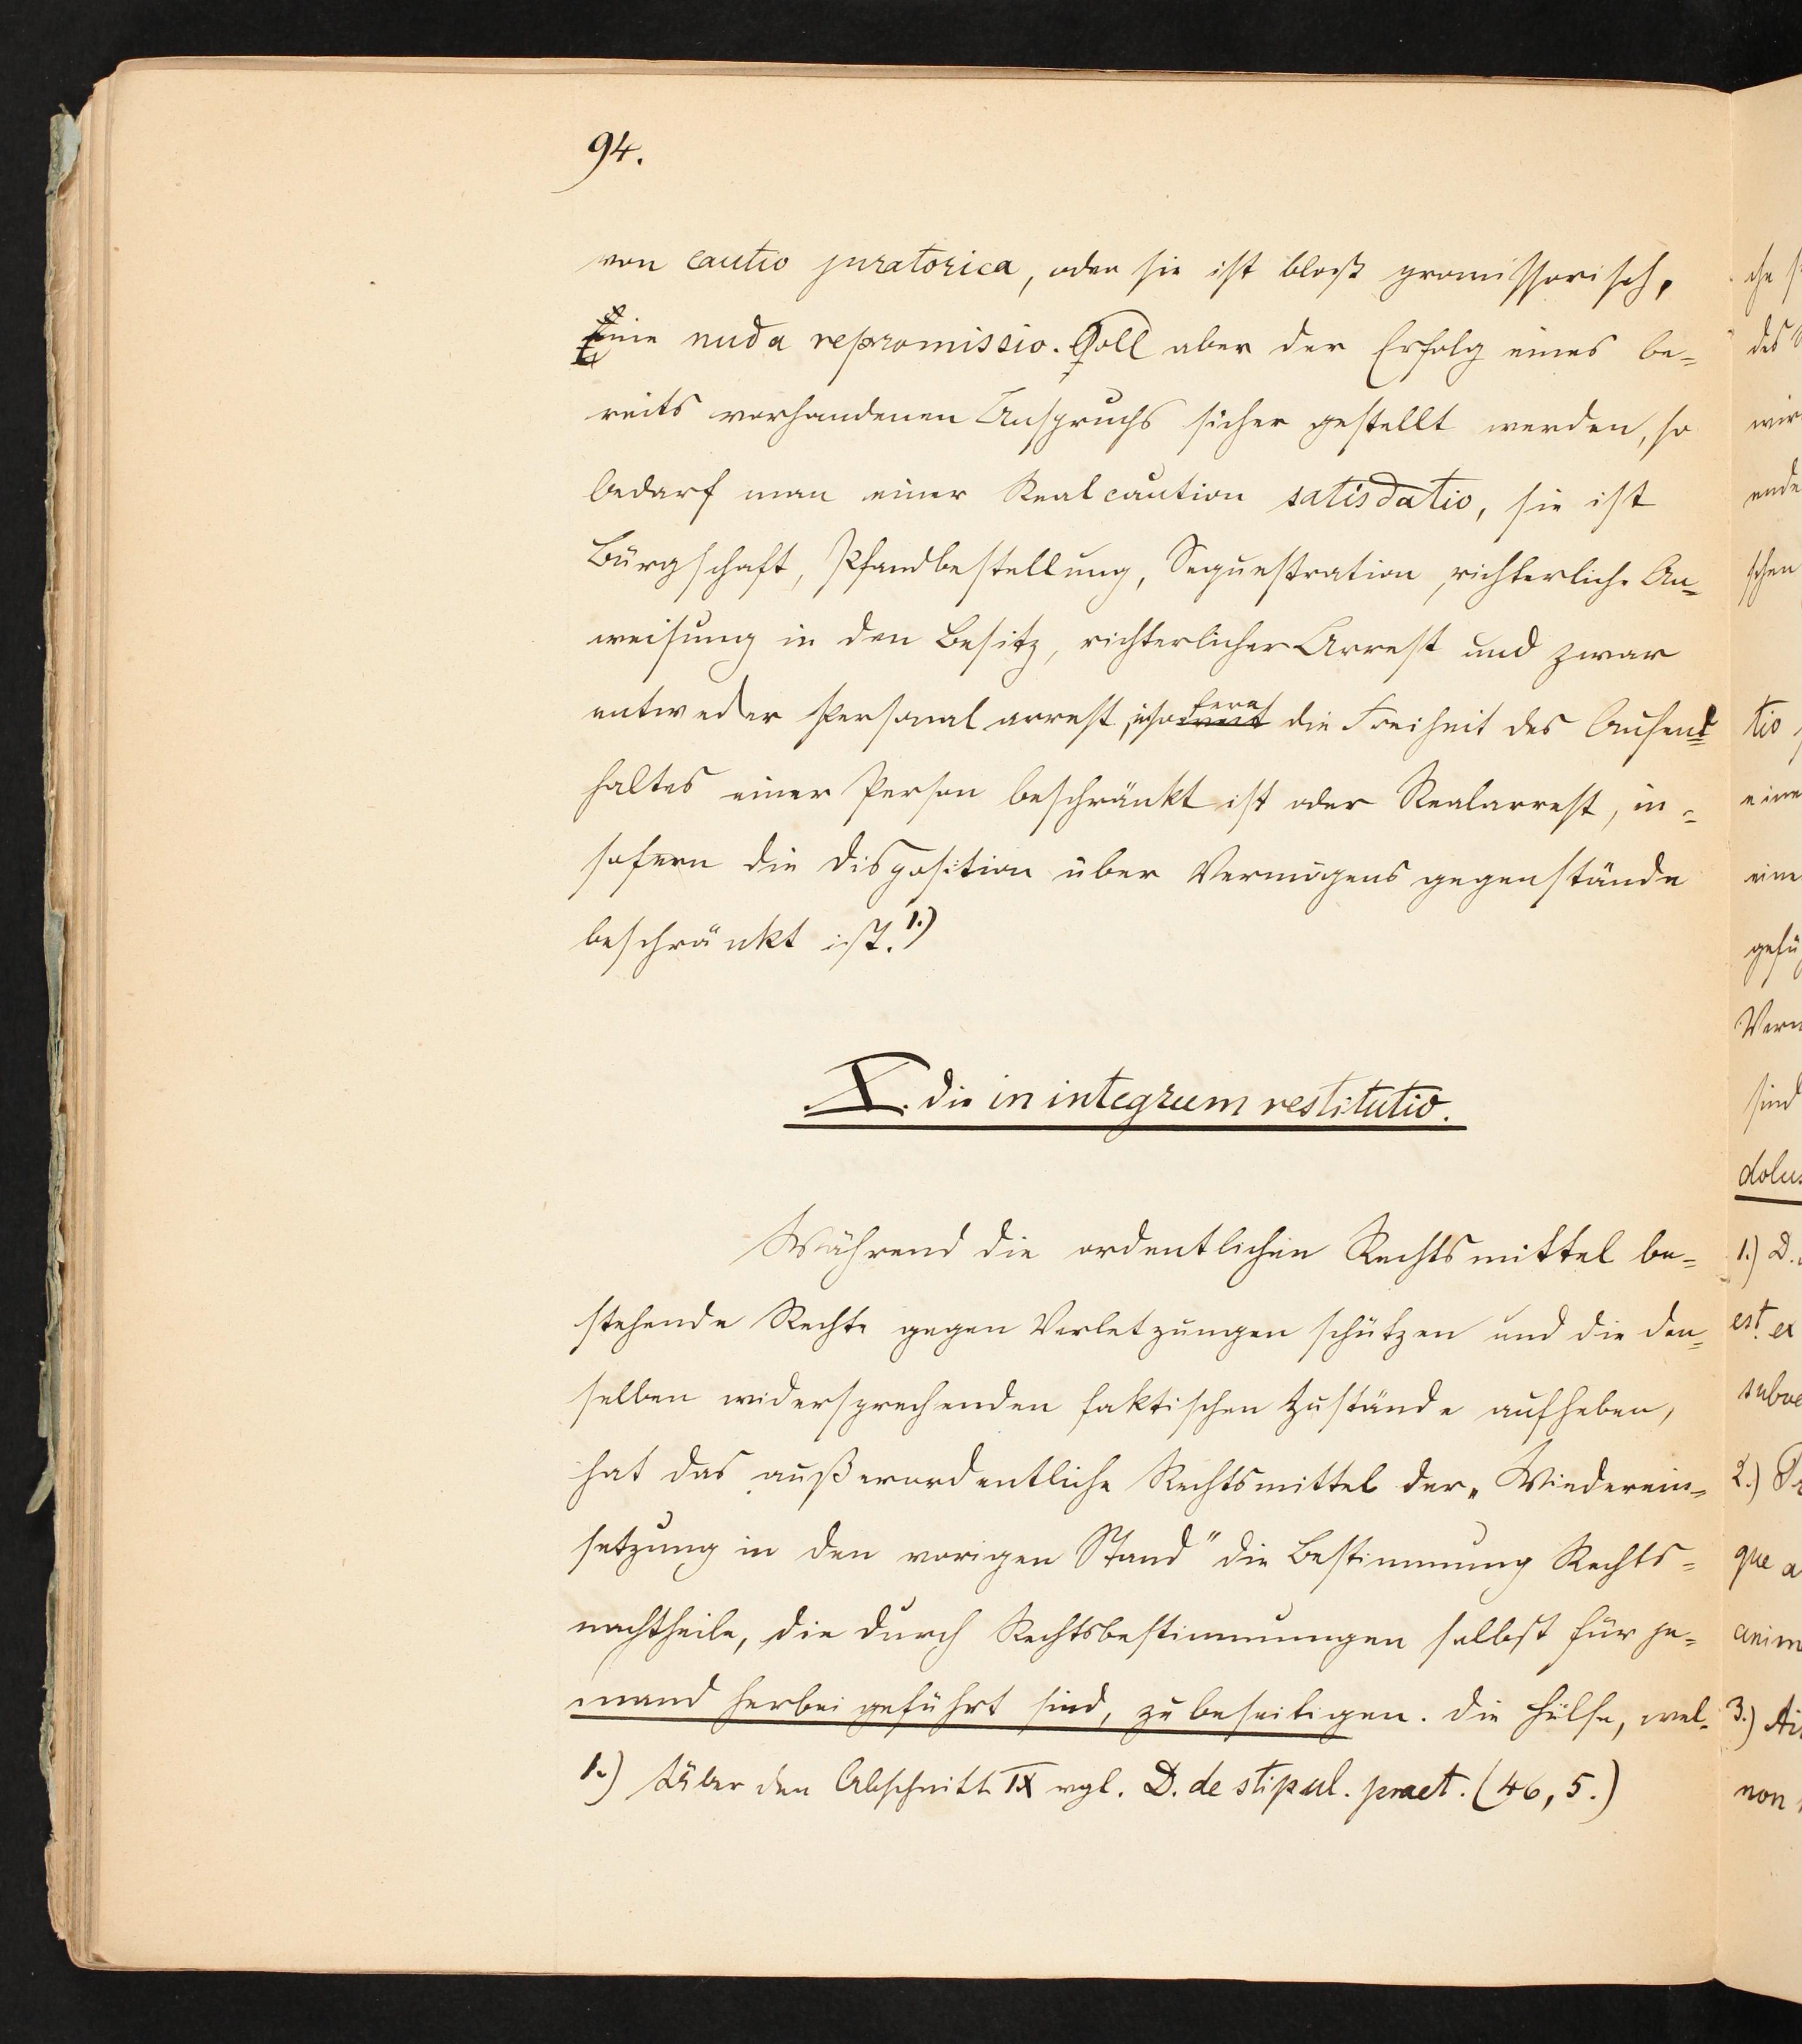 94.
von cautio juratorica, oder sie ist bloß promissorisch,
eine nuda repromissio. Soll aber der Erfolg eines be-
reits vorhandenen Anspruchs sicher gestellt werden, so
bedarf man einer Realcaution satisdatio, sie ist
Bürgschaft, Pfandbestellung, Sequestration, richterliche An-
weisung in den Besitz, richterlicher Arrest und zwar
entweder Personalarrest, insofern die Freiheit des Aufent-
haltes einer Person beschränkt ist oder Realarrest, in-
sofern die Disposition über Vermögensgegenstände
beschränkt ist. 1.)
X. die in integrum restitutio.
Während die ordentlichen Rechtsmittel be-
stehende Rechte gegen Verletzungen schützen und die den-
selben widersprechenden faktischen Zustände aufheben,
hat das außerordentliche Rechtsmittel der „Wiederein-
setzung in den vorigen Stand" die Bestimmung Rechts-
nachtheile, die durch Rechtsbestimmungen selbst für je-
mand herbeigeführt sind, zu beseitigen. Die Hülfe, wel-
1.) Über den Abschnitt IX vgl. D. de stipul. praet. (46, 5.)